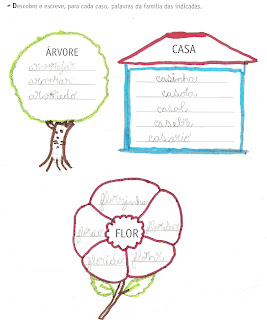 Descobre e escreve, para cada caso, palavras da família das indicadas.
ÁRVORE
arvorejar
arvorar
arvoredo
CASA
casinha
casota
casal
casebre
casario
florzinha
FLOR
florido